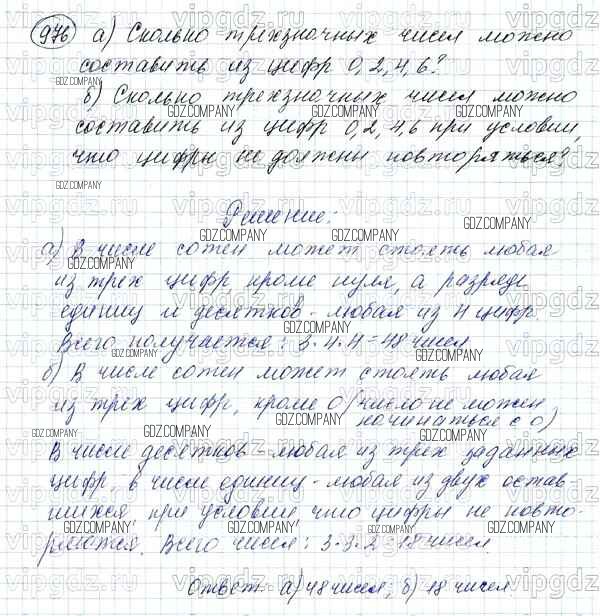 976 а) Сколько трехзначных чисел можно
составить из цифр 0, 2, 4, 6?
б) Сколько трехзначных чисел можно
составить из цифр 0, 2, 4, 6 при условии,
что цифры не должны повторяться?
Решение:
а) В числе сотен может стоять любая
из трех цифр, кроме нуля, а разряде
единиц и десятков - любая из 4 цифр.
Всего получается: 3·4·4=48 чисел
б) В числе сотен может стоять любая
из трех цифр, кроме 0 (число не может
начинаться с 0)
В числе десятков - любая из трех заданных
цифр, в числе единиц - любая из двух остав
шихся при условии что цифры не повто-
ряются. Всего чисел: 3·3·2=18 чисел.
Ответ: а) 48 чисел; б) 18 чисел